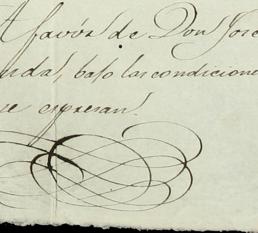 A favór de Don José
bajo las condiciones
que espresan.